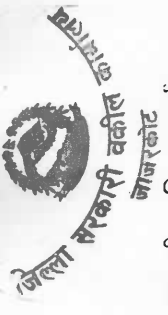 जिल्ला सरकारी वकील कार्यालय
जाजरकोट